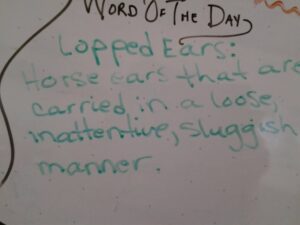 WORD OF THE DAY
Lopped Ears:
Horse ears that are
carried in a loose,
inattentive, sluggish
manner.